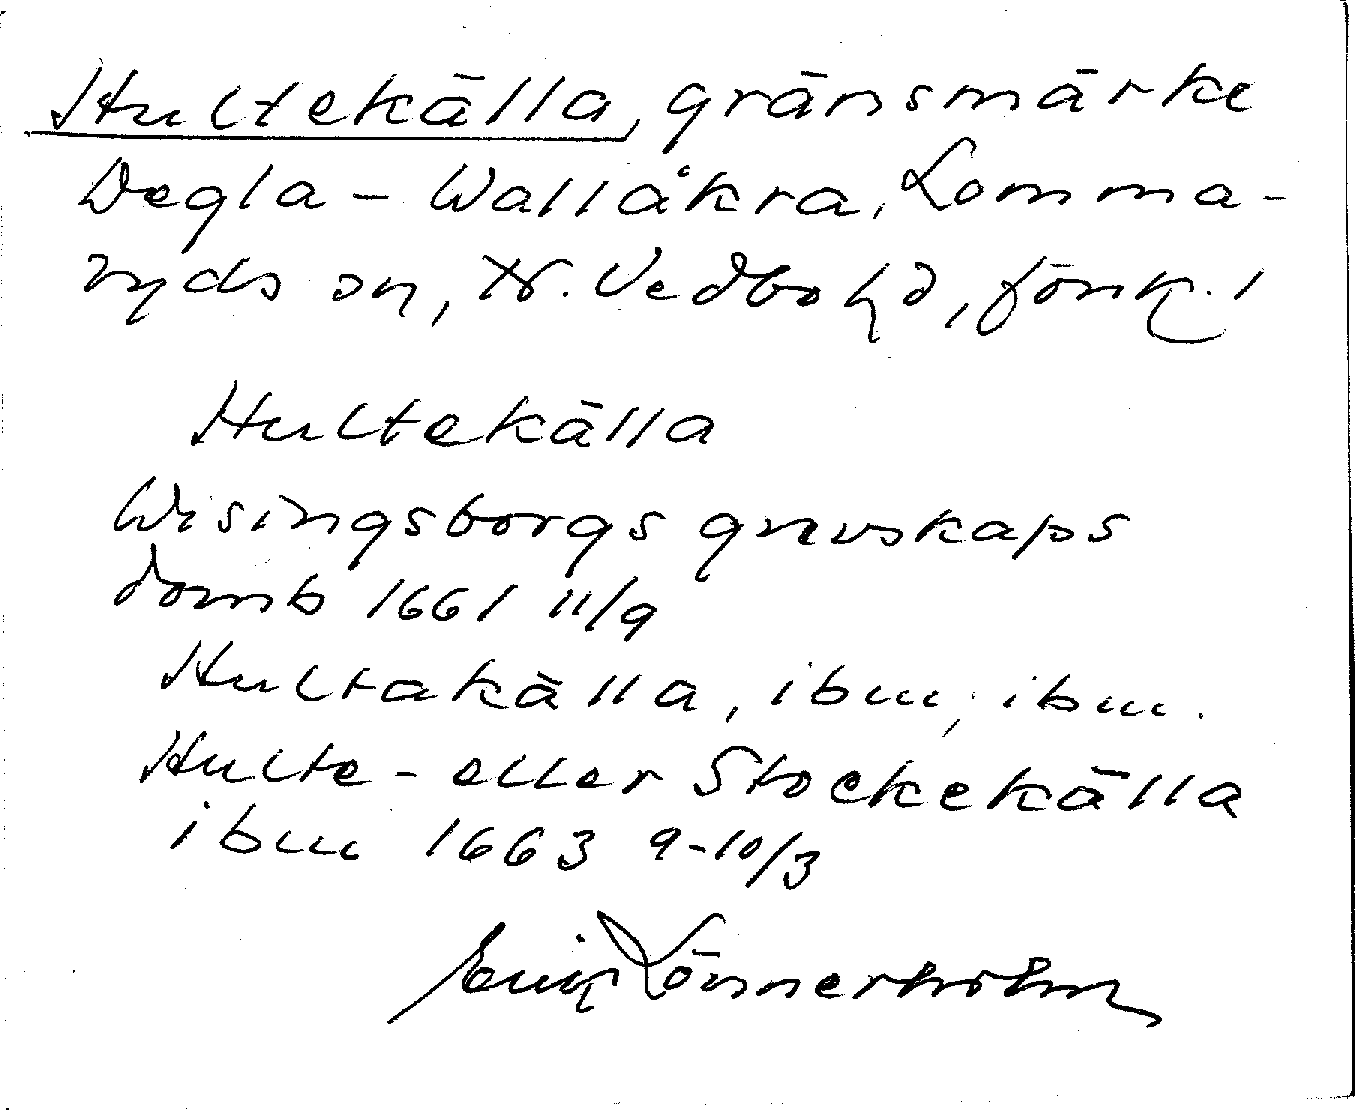 Hultekälla, gränsmärke
Degla - Wallåkra, Lomma-
ryds sn, N. Vedbo hd, Jönk. l
Hultekälla
Wisingsborgs grevskaps
domb 1661 11/9
Hultakälla, ibm, ibm.
Hulte- eller Stockekälla
ibm 1663 9-10/3
Erik Lönnerholm